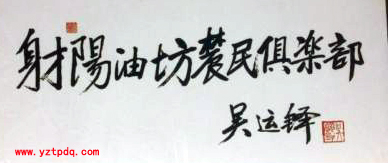 射陽油坊農民俱楽部
吴运铎
www.yztpdq.com